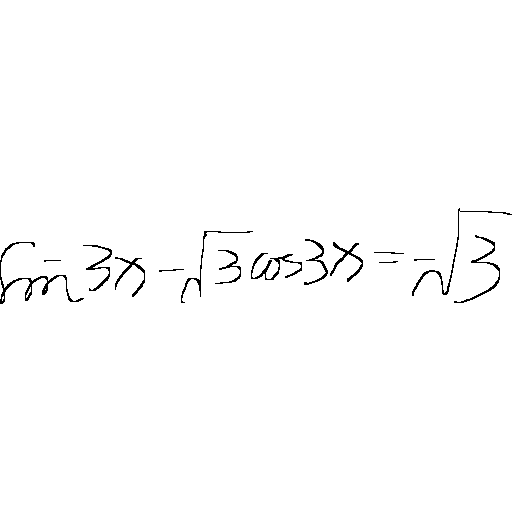 sin 3x - √3 cos 3x = -√3